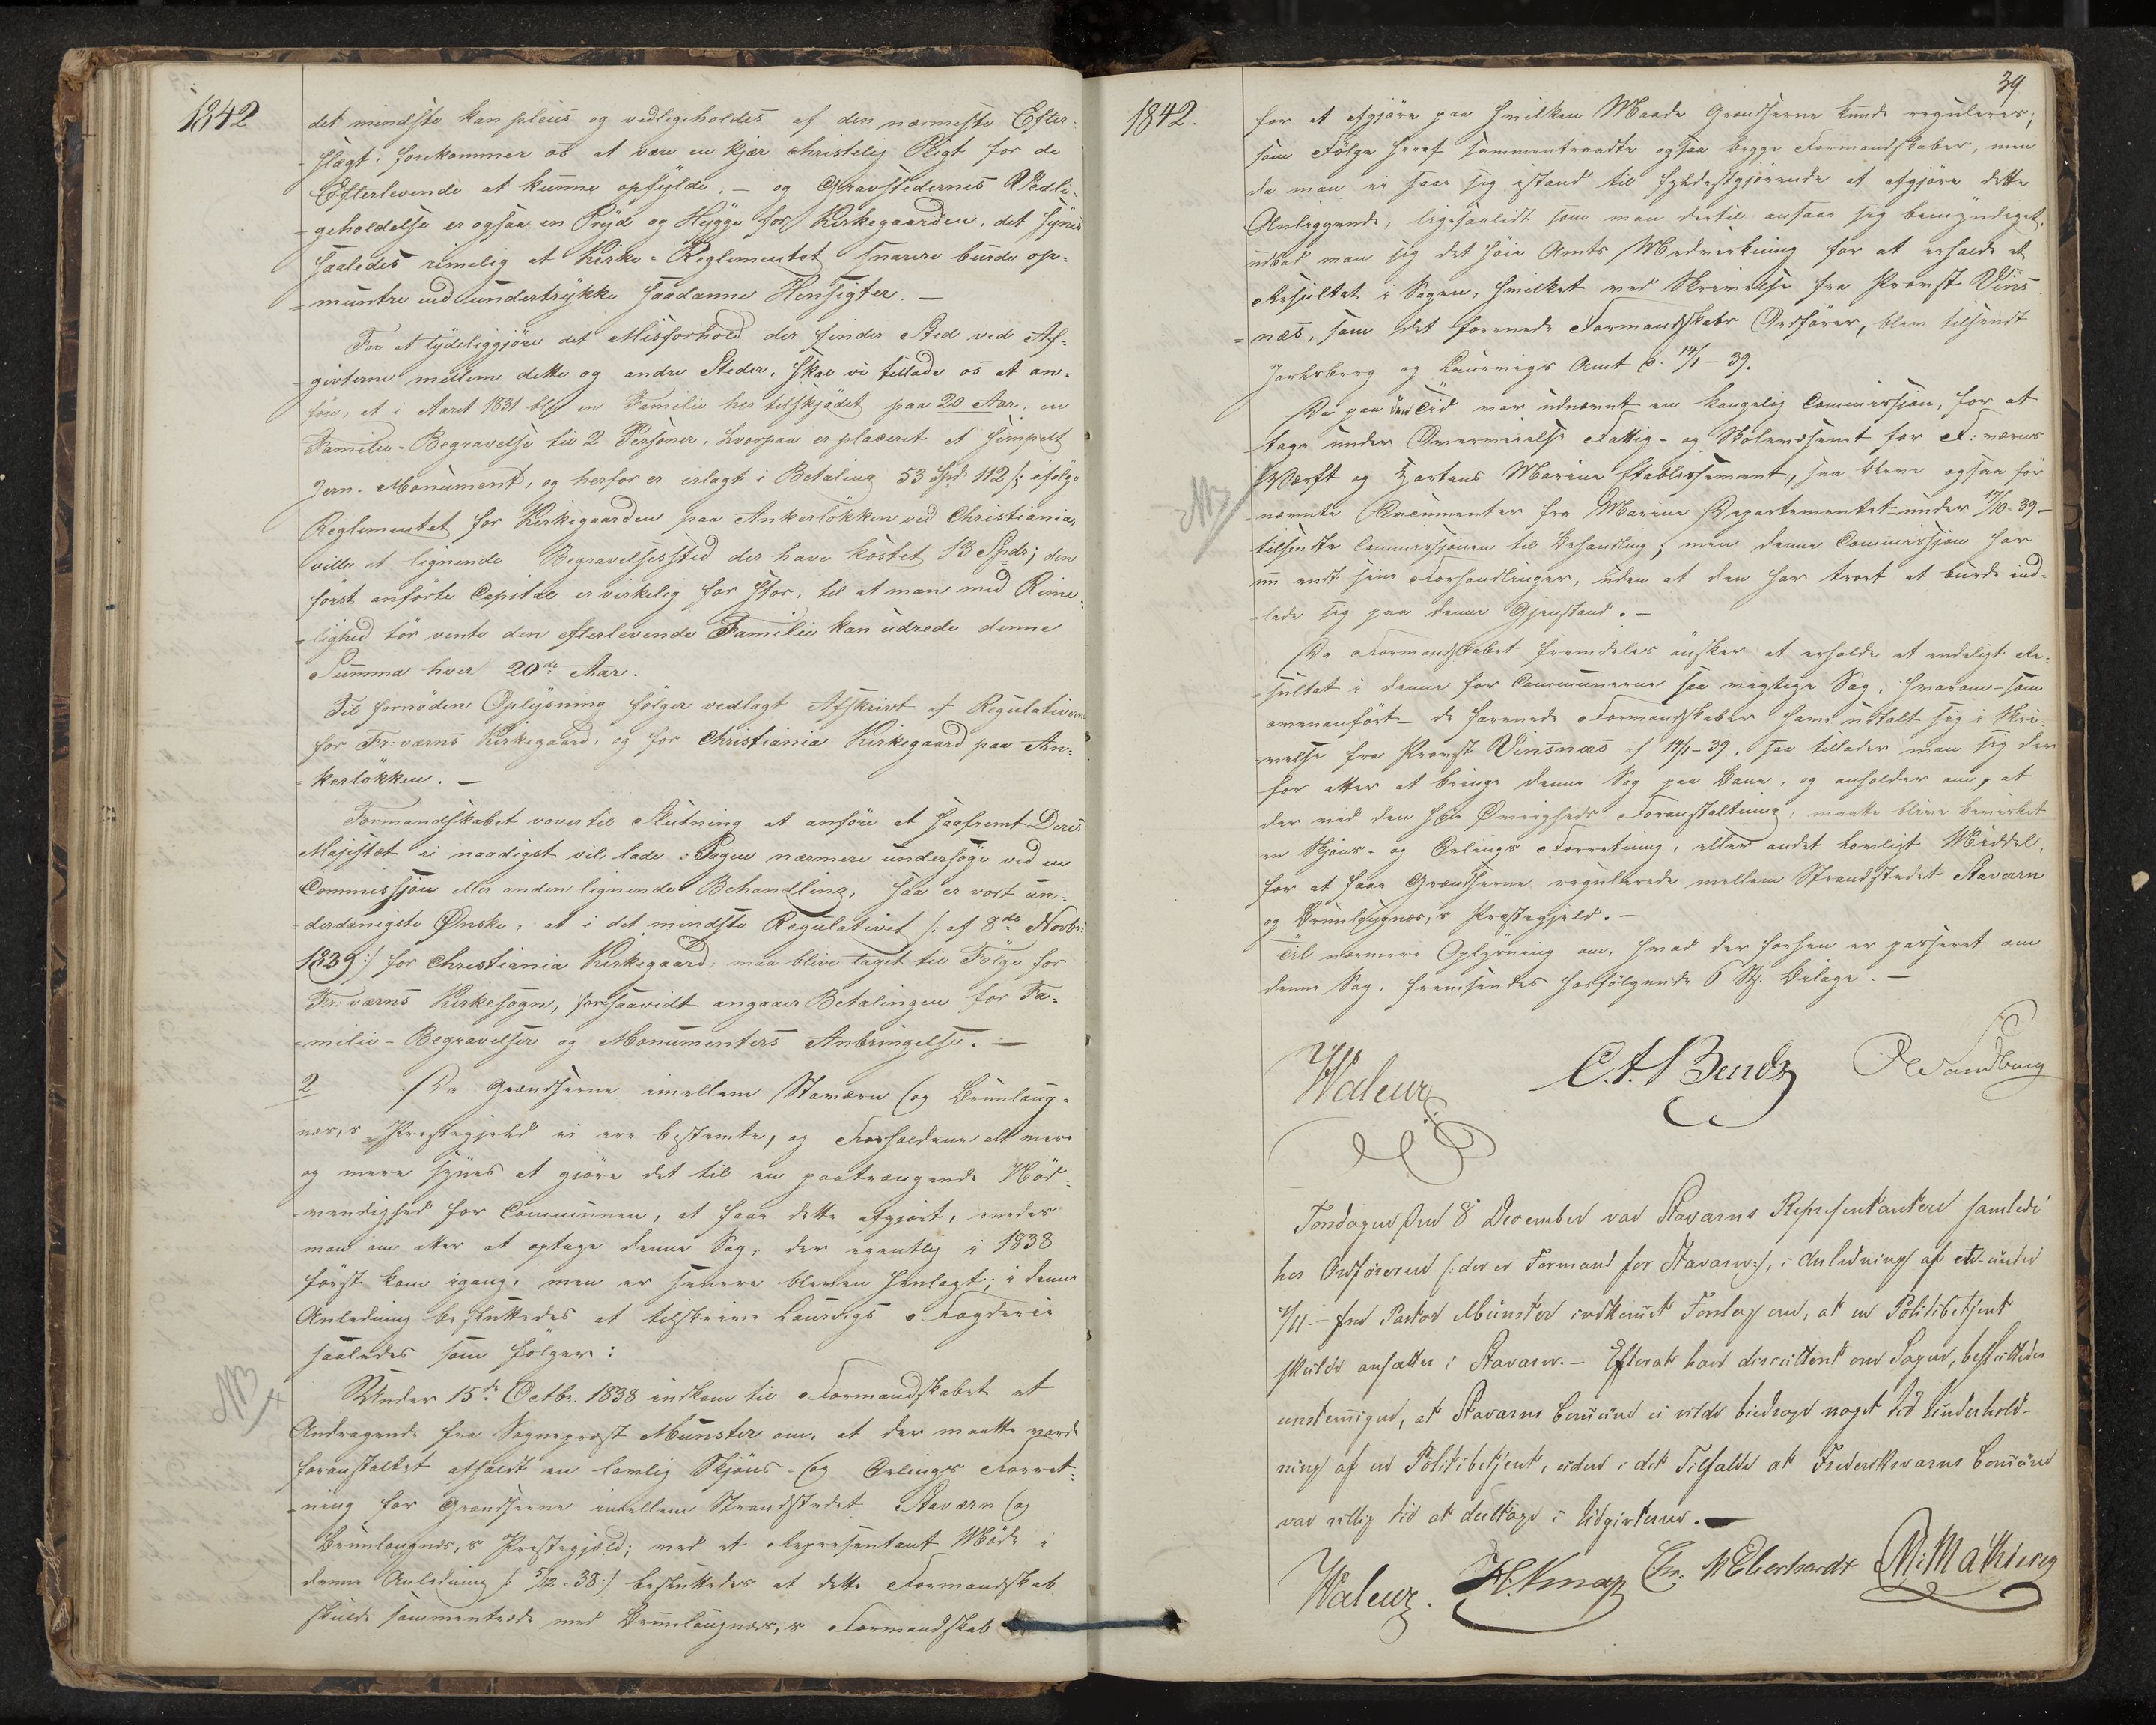 1842
det mindste kan pleies og vedligeholdes af den nærmeste Efter-
slægt, forekommer os at være en kjær christelig Pligt for de
Efterlevende at kunne opfylde. — og Gravstedernes Vedli-
=geholdelse er ogsaa en Pryd og Hygge for Kirkegaarden, det synes
saaledes rimelig at Kirke-Reglementet snarere burde op-
=muntre end undertrykke saadanne Hensigter. —
For at tydeliggjöre det Misforhold der finder Sted ved Af-
givterne mellem dette og andre Steder, skal vi tillade os at an-
före, at i Aaret 1831 blev en Familie her tilskjödet paa 20 Aar, en
Familie-Begravelse til 2 Personer, hvorpaa er placeret et simpelt
Jern-Monument, og herfor er erlagt i Betaling 53 Spd 112 s; efölge
Reglementet for Kirkegaarden paa Ankerlökken ved Christiania,
ville et lignende Begravelsessted der have kostet 13 Spdr; den
först anförte Capital er virkelig for stor, til at man med Rime-
=lighed tör vente den efterlevende Familie kan udrede denne
Summa hver 20de Aar.
Til fornöden Oplysning fölger vedlagt Afskrivt af Regulativerne
for Fr:værns Kirkegaard, og for Christiania Kirkegaard paa An-
=kerlökken. —
Formandskabet vover til Slutning at anföre at saafremt Deres
Majestæt ei naadigst vil lade Sagen nærmere undersöge ved en
Commission eller anden lignende Behandling, saa er vort un-
=derdanigste Ønske, at i det mindste Regulativet /: af 8de Novbr
1839 :/ for Christiania Kirkegaard, maa blive taget til Fölge for
Fr:værns Kirkesogn, forsaavidt angaaer Betalingen for Fa-
=milie-Begravelser og Monumenters Anbringelse. —
2 Da Grændserne imellem Staværn og Brunlaug-
næs,s Præstegjeld ei ere bestemte, og Forholdene alt mere
og mere synes at gjöre det til en paatrængende Nöd-
=vendighed for Communen, at faae dette afgjort, enedes
man om atter at optage denne Sag, der egentlig i 1838
först kom igang, men er senere bleven henlagt; i denne
Anledning besluttedes at tilskrive Laurvigs Fogderie
saaledes som fölger:
NB
Under 15de Octbr. 1838 indkom til Formandskabet et
Andragende fra Sogneprest Münster om, at der maatte vorde
foranstaltet afholdt en lovlig Skjöns- og Delings Forret-
=ning for Grændserne imellem Strandstedet Staværn og
Brunlaugnæs,s Præstegjeld; ved et Representant Möde i
denne Anledning /: 5/12-38 :/ besluttedes at dette Formandskab
skulde sammentræde med Brunlaugnæs,s Formandskab
39
1842.
for at afgjöre paa hvilken Maade Grændserne kunde reguleres;
som Fölge heraf sammentraadte ogsaa begge Formandskaber, men
da man ei saae sig istand til fyldestgjörende at afgjöre dette
Anliggende, ligesaalidt som man dertil ansaae sig bemyndiget,
udbad man sig det höie Amts Medvirkning for at erholde et
Resultat i Sagen, hvilket ved Skrivelse fra Provst Vins
=næs, som det forenede Formandskabs Ordförer, blev tilsendt
Jarlsberg og Laurvigs Amt d. 14/1-39.
Da paa den Tid var udnævnt en kongelig Commission, for at
tage under Overveielse Fattig- og Skolevæsenet for F:værns
NB
Værft og Hortens Marine Etablissement, saa bleve ogsaa för
nævnte Documenter fra Marine Departementet under 17/10-39-
tilsendte Commissionen til Behandling; men denne Commission har
nu endt sine Forhandlinger, uden at den har troet at burde ind-
lade sig paa denne Gjenstand. —
Da Formandskabet fremdeles önsker at erholde et endeligt Re-
=sultat i denne for Communerne saa vigtige Sag, hvorom – som
ovenanfört – de forenede Formandskaber have udtalt sig i Skri-
=velse fra Provst Vinsnæs af 14/1-39, saa tillader man sig der
for atter at bringe denne Sag paa Bane, og anholder om, at
der ved den höie Øvrigheds Foranstaltning, maatte blive bevirket
en Skjöns- og Delings Forretning, eller andet lovligt Middel,
for at faae Grændserne regulerede mellem Strandstedet Stavarn
og Brunlaugnæs,s Præstegjeld. —
Til nærmere Oplysning om, hvad der forhen er passeret om
denne Sag, fremsendes hosfölgende 6 St. Bilage. —
Waleur C.A. Bendz Sandberg
Torsdagen den 8 December var Stavarns Representantere samlede
hos Ordföreren (: der er Formand for Stavarn :), i Anledning af et under
/11 - fra Pastor Münster indkommet Forslag om, at en Politibetjent
skulde ansættes i Stavarn. – Efterat have discuteret om Sagen, besluttedes
enstemmigen, at Stavarns Commune ei vilde bidrage noget til Underhold-
ning af en Politibetjent, uden i det Tilfælde at Frederiksvarns Commune
var villig til at deeltage i Udgivterne. —
Waleur. H. Knap Chr: M Eberhardt M. Mathiesen